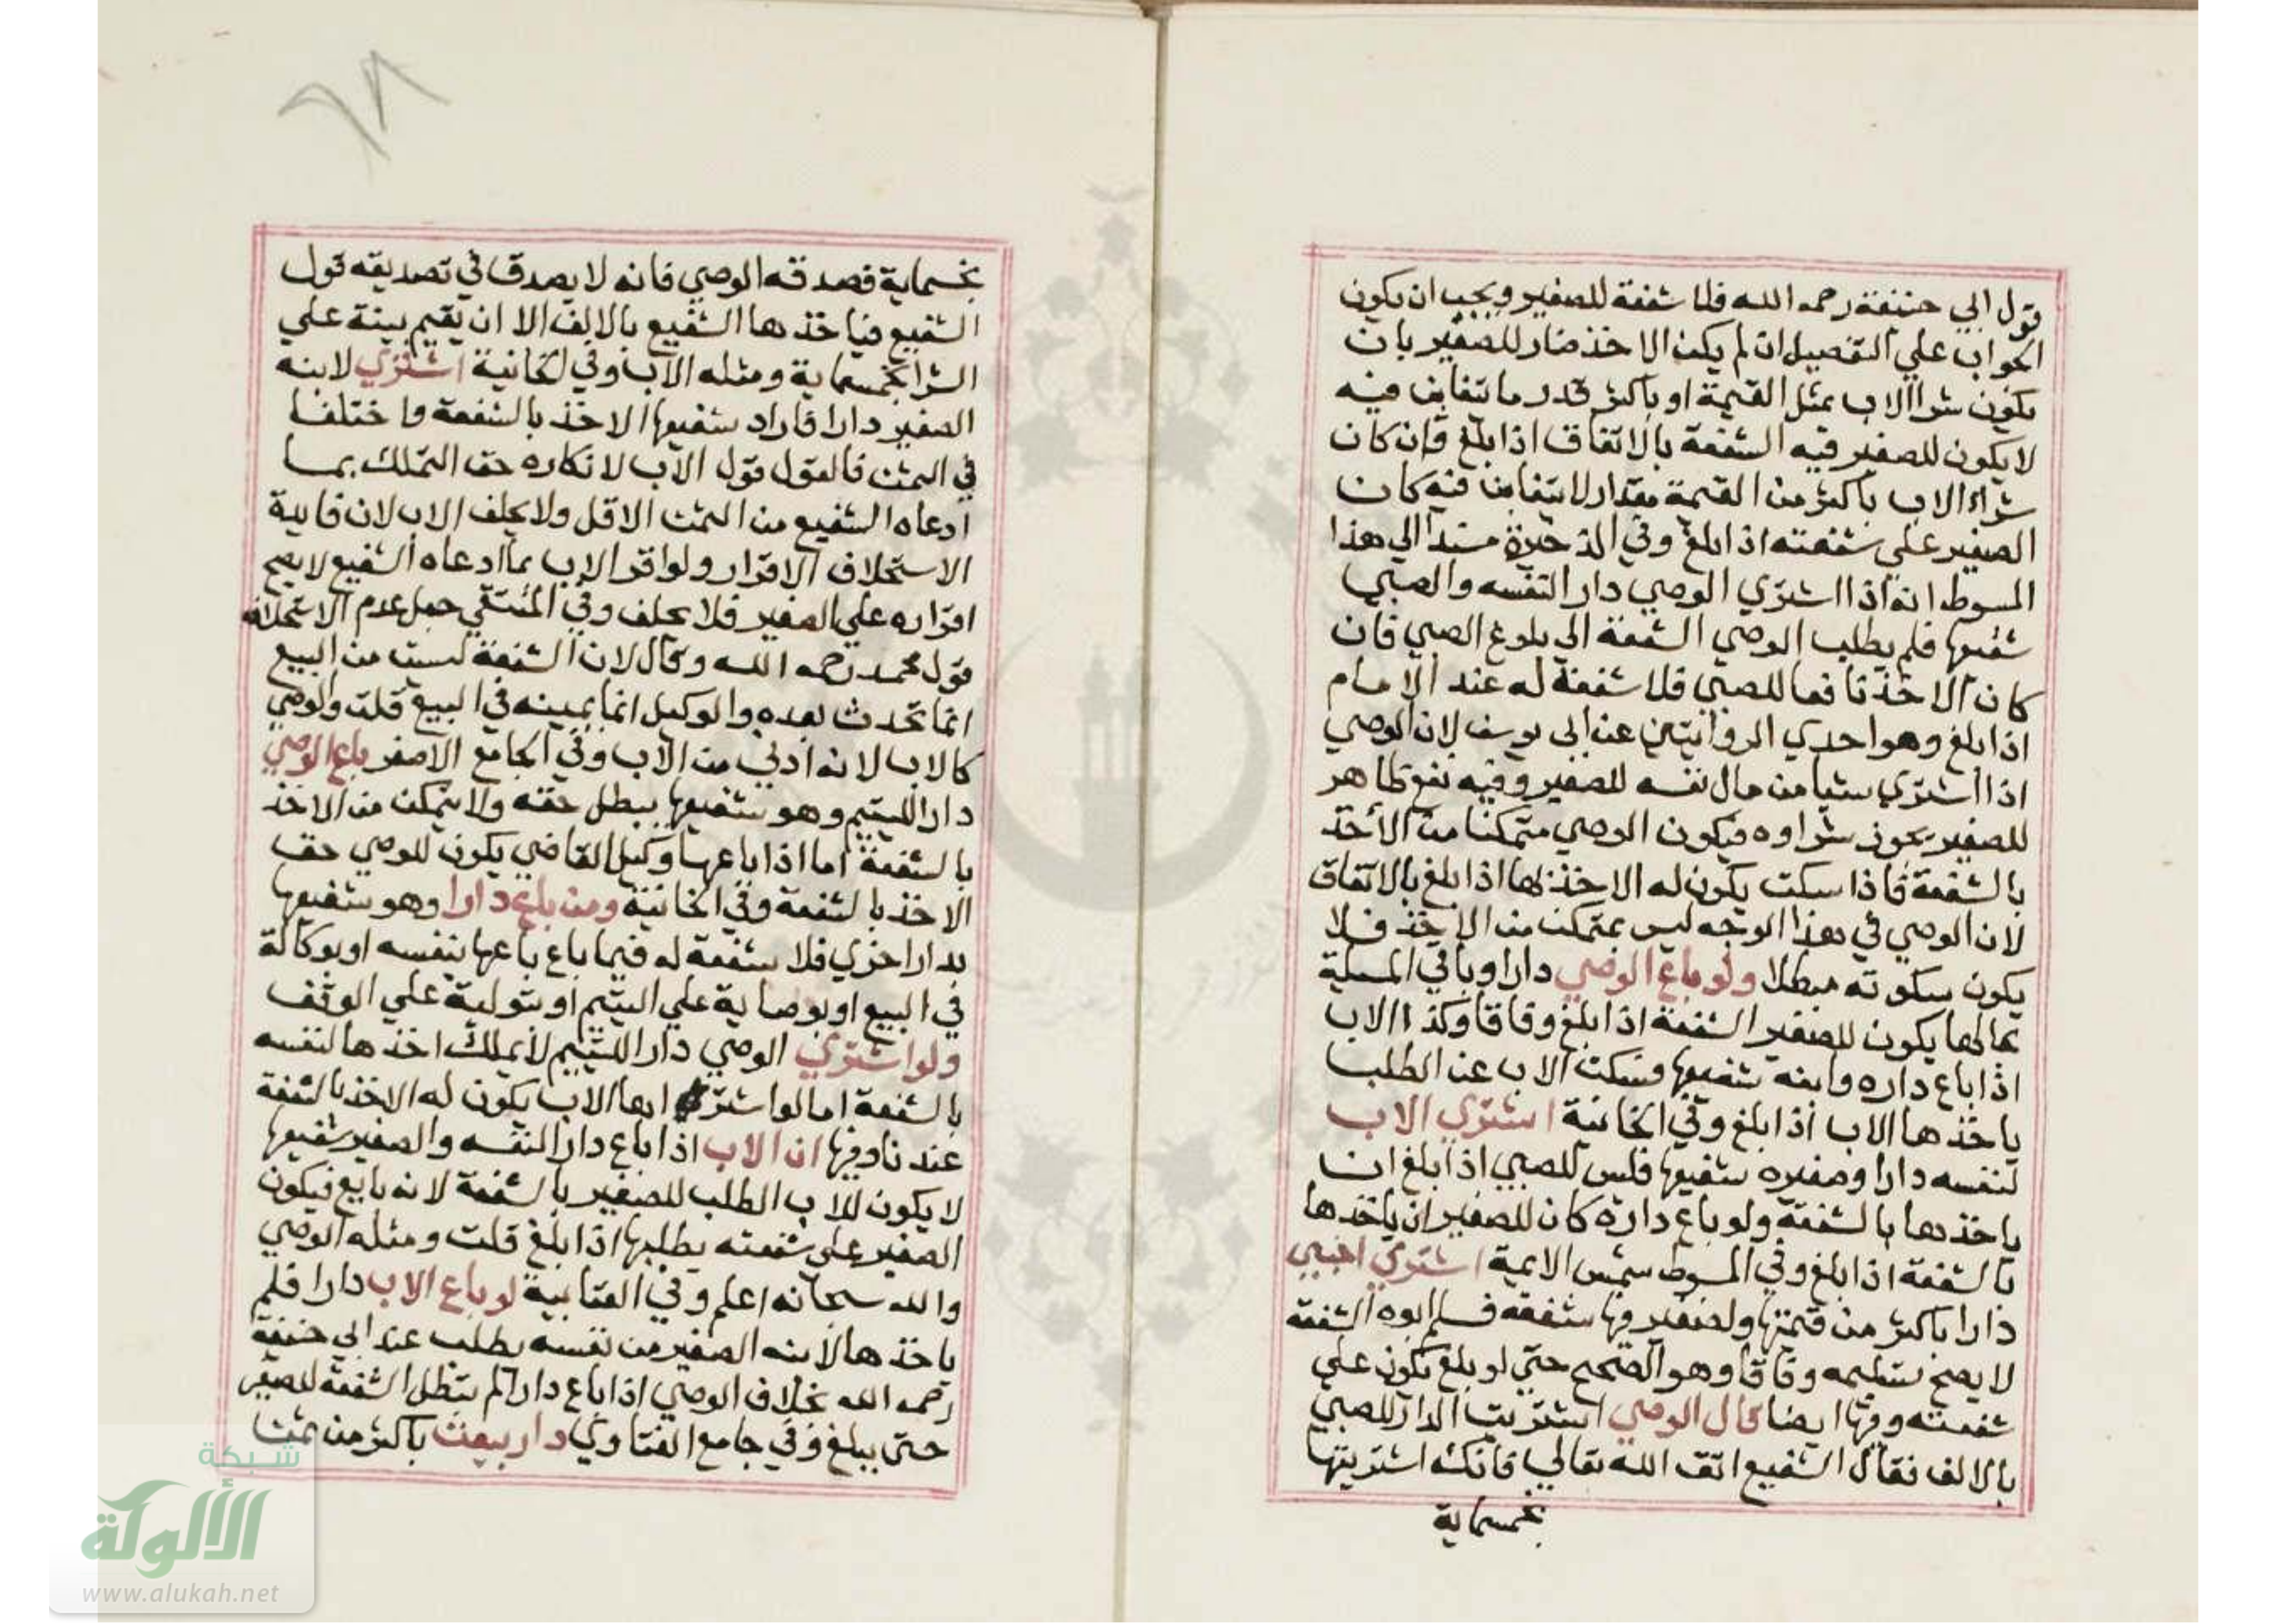 قول ابي حنيفة رحمه الله فلا شفعة للصغير ويجب ان يكون
الجواب علي التفصيل ان لم يكن الاخذ ضار للصغير بان
يكون شرا الاب بمثل القيمة او باكثر قدر ما يتغابن فيه
لا يكون للصغير فيه الشفعة بالاتفاق اذا بلغ فان كان
شراء الاب باكثر من القيمة مقدار لا يتغابن فيه كان
الصغير علي شفعته اذا بلغ وفي الذخيرة مسندا الي هذا
المسوط انه اذا اشتري الوصي دار النفسه والصبي
شفيعها فلم يطلب الوصي الشفعة الي بلوغ الصبي فان
كان الاخذ نافعا للصبي فلا شفعة له عند الامام
اذا بلغ وهو احدي الروايتين عن ابي يوسف لان الوصي
اذا اشتري شيا من مال نفسه للصغير وفيه نفع ظاهر
للصغير يجوز شراوه فيكون الوصي متمكنا من الأخذ
بالشفعة فاذا سكت يكون له الاخذ لها اذا بلغ بالاتفاق
لان الوصي في هذا الوجه ليس بمتمكن من الاخذ فلا
يكون سكوته مبطلا ولو باع الوصي دارا وباقي المسلة
بحالها يكون للصغير الشفعة اذا بلغ وفاقا وكذا الاب
اذا باع داره وابنه شفيعها فسكت الاب عن الطلب
ياخذها الاب اذا بلغ وفي الخانية اشتري الاب
لنفسه دارا وصغيره شفيعها فلس للصبي اذا بلغ ان
ياخذها بالشفعة ولو باع داره كان للصغير ان ياخذها
بالشفعة اذا بلغ وفي المسوط شمس الايمة اشتري اجنبي
دارا باكثر من قيمتها ولصغير فيها شفعة فسلم ابوه الشفعة
لا يصح تسليمه وفاقا وهو الصحيح حتي لو بلغ يكون علي
شفعته وفيها ايضا قال الوصي اشتريت الدار للصبي
بالالف فقال الشفيع اتق الله تعالي فانك اشتريتها
بخمسماية
٦٨
بخمسماية فصدقه الوصي فانه لا يصدق في تصديقه قول
الشفيع فياخذها الشفيع بالالف الا ان يقيم بينة علي
الشرا بخمسماية ومثله الاب وفي الخانية اشتري لابنه
الصغير دارا فاراد شفيعها الاخذ بالشفعة واختلفا
في الثمن فالقول قول الاب لانكاره حق التملك بما
ادعاه الشفيع من الثمن الاقل ولا يحلف الاب لان فايدة
الاستحلاف الاقرار ولو اقر الاب بما ادعاه الشفيع لا يصح
اقراره علي الصغير فلا يحلف وفي المنتقي جعل عدم الاستحلاف
قول محمد رحمه الله وقال لان الشفعة ليست من البيع
انما تحدث بعده والوكيل انما يمينه في البيع قلت والوصي
كالاب لانه ادني من الاب وفي الجامع الاصغر باع الوصي
دارا لليتيم وهو شفيعها يبطل حقه ولا يتمكن من الاخذ
بالشفعة اما اذا باعها وكيل القاضي يكون للوصي حق
الاخذ بالشفعة وفي الخانية ومن باع دارا وهو شفيعها
بدار اخري فلا شفعة له فيما باع باعها بنفسه او بوكالة
في البيع او بوصاية علي اليتيم او بتولية علي الوقف
ولو اشتري الوصي دارا لليتيم لا يملك اخذها لنفسه
بالشفعة اما لو اشتر ابها الاب يكون له الاخذ بالشفعة
عندنا وفيها ان الاب اذا باع دارا لنفسه والصغير شفيعها
لا يكون للاب الطلب للصغير بالشفعة لانه بايع فيكون
الصغير علي شفعته يطلبها اذا بلغ قلت ومثله الوصي
والله سبحانه اعلم وفي العتابية لو باع الاب دارا فلم
ياخذها لابنه الصغير من نفسه بطلت عند ابي حنيفة
رحمه الله بخلاف الوصي اذا باع دارا لم تبطل الشفعة للصغير
حتي يبلغ وفي جامع الفتاوي دار بيعت باكثر من ثمن
شبكة
الألوكة
www.alukah.net